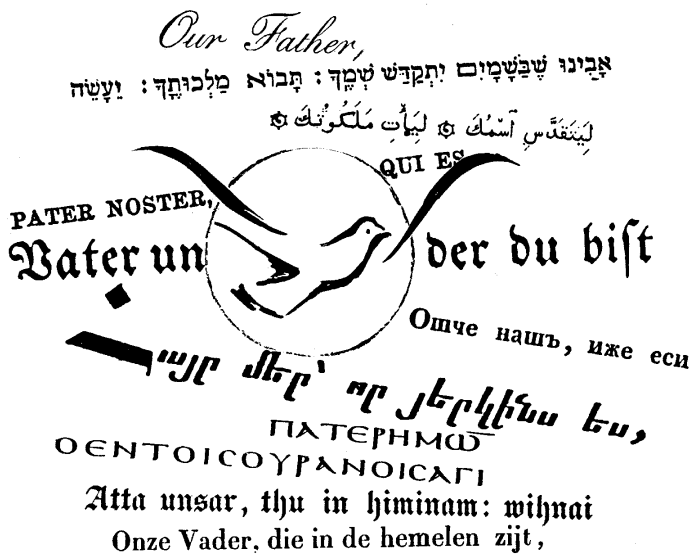 Our Father,
אָבִינוּ שֶׁבַּשָּׁמָיִם יִתְקַדַּשׁ שְׁמֶךָ: תָּבוֹא מַלְכוּתֶךָ: יֵעָשֶׂה
لِيَتَقَدَّسِ ٱسْمُكَ ۞ لِيَأْتِ مَلَكُوتُكَ ۞
QUI ES
PATER NOSTER,
Vater un der du biſt
Отче нашъ, иже еси
Հայր մեր՝ որ յերկինս ես,
ΠΑΤΕΡΗΜΩ̅
ΟΕΝΤΟΙϹΟΥΡΑΝΟΙϹΑΓΙ
Atta unsar, thu in himinam: wihnai
Onze Vader, die in de hemelen zijt,